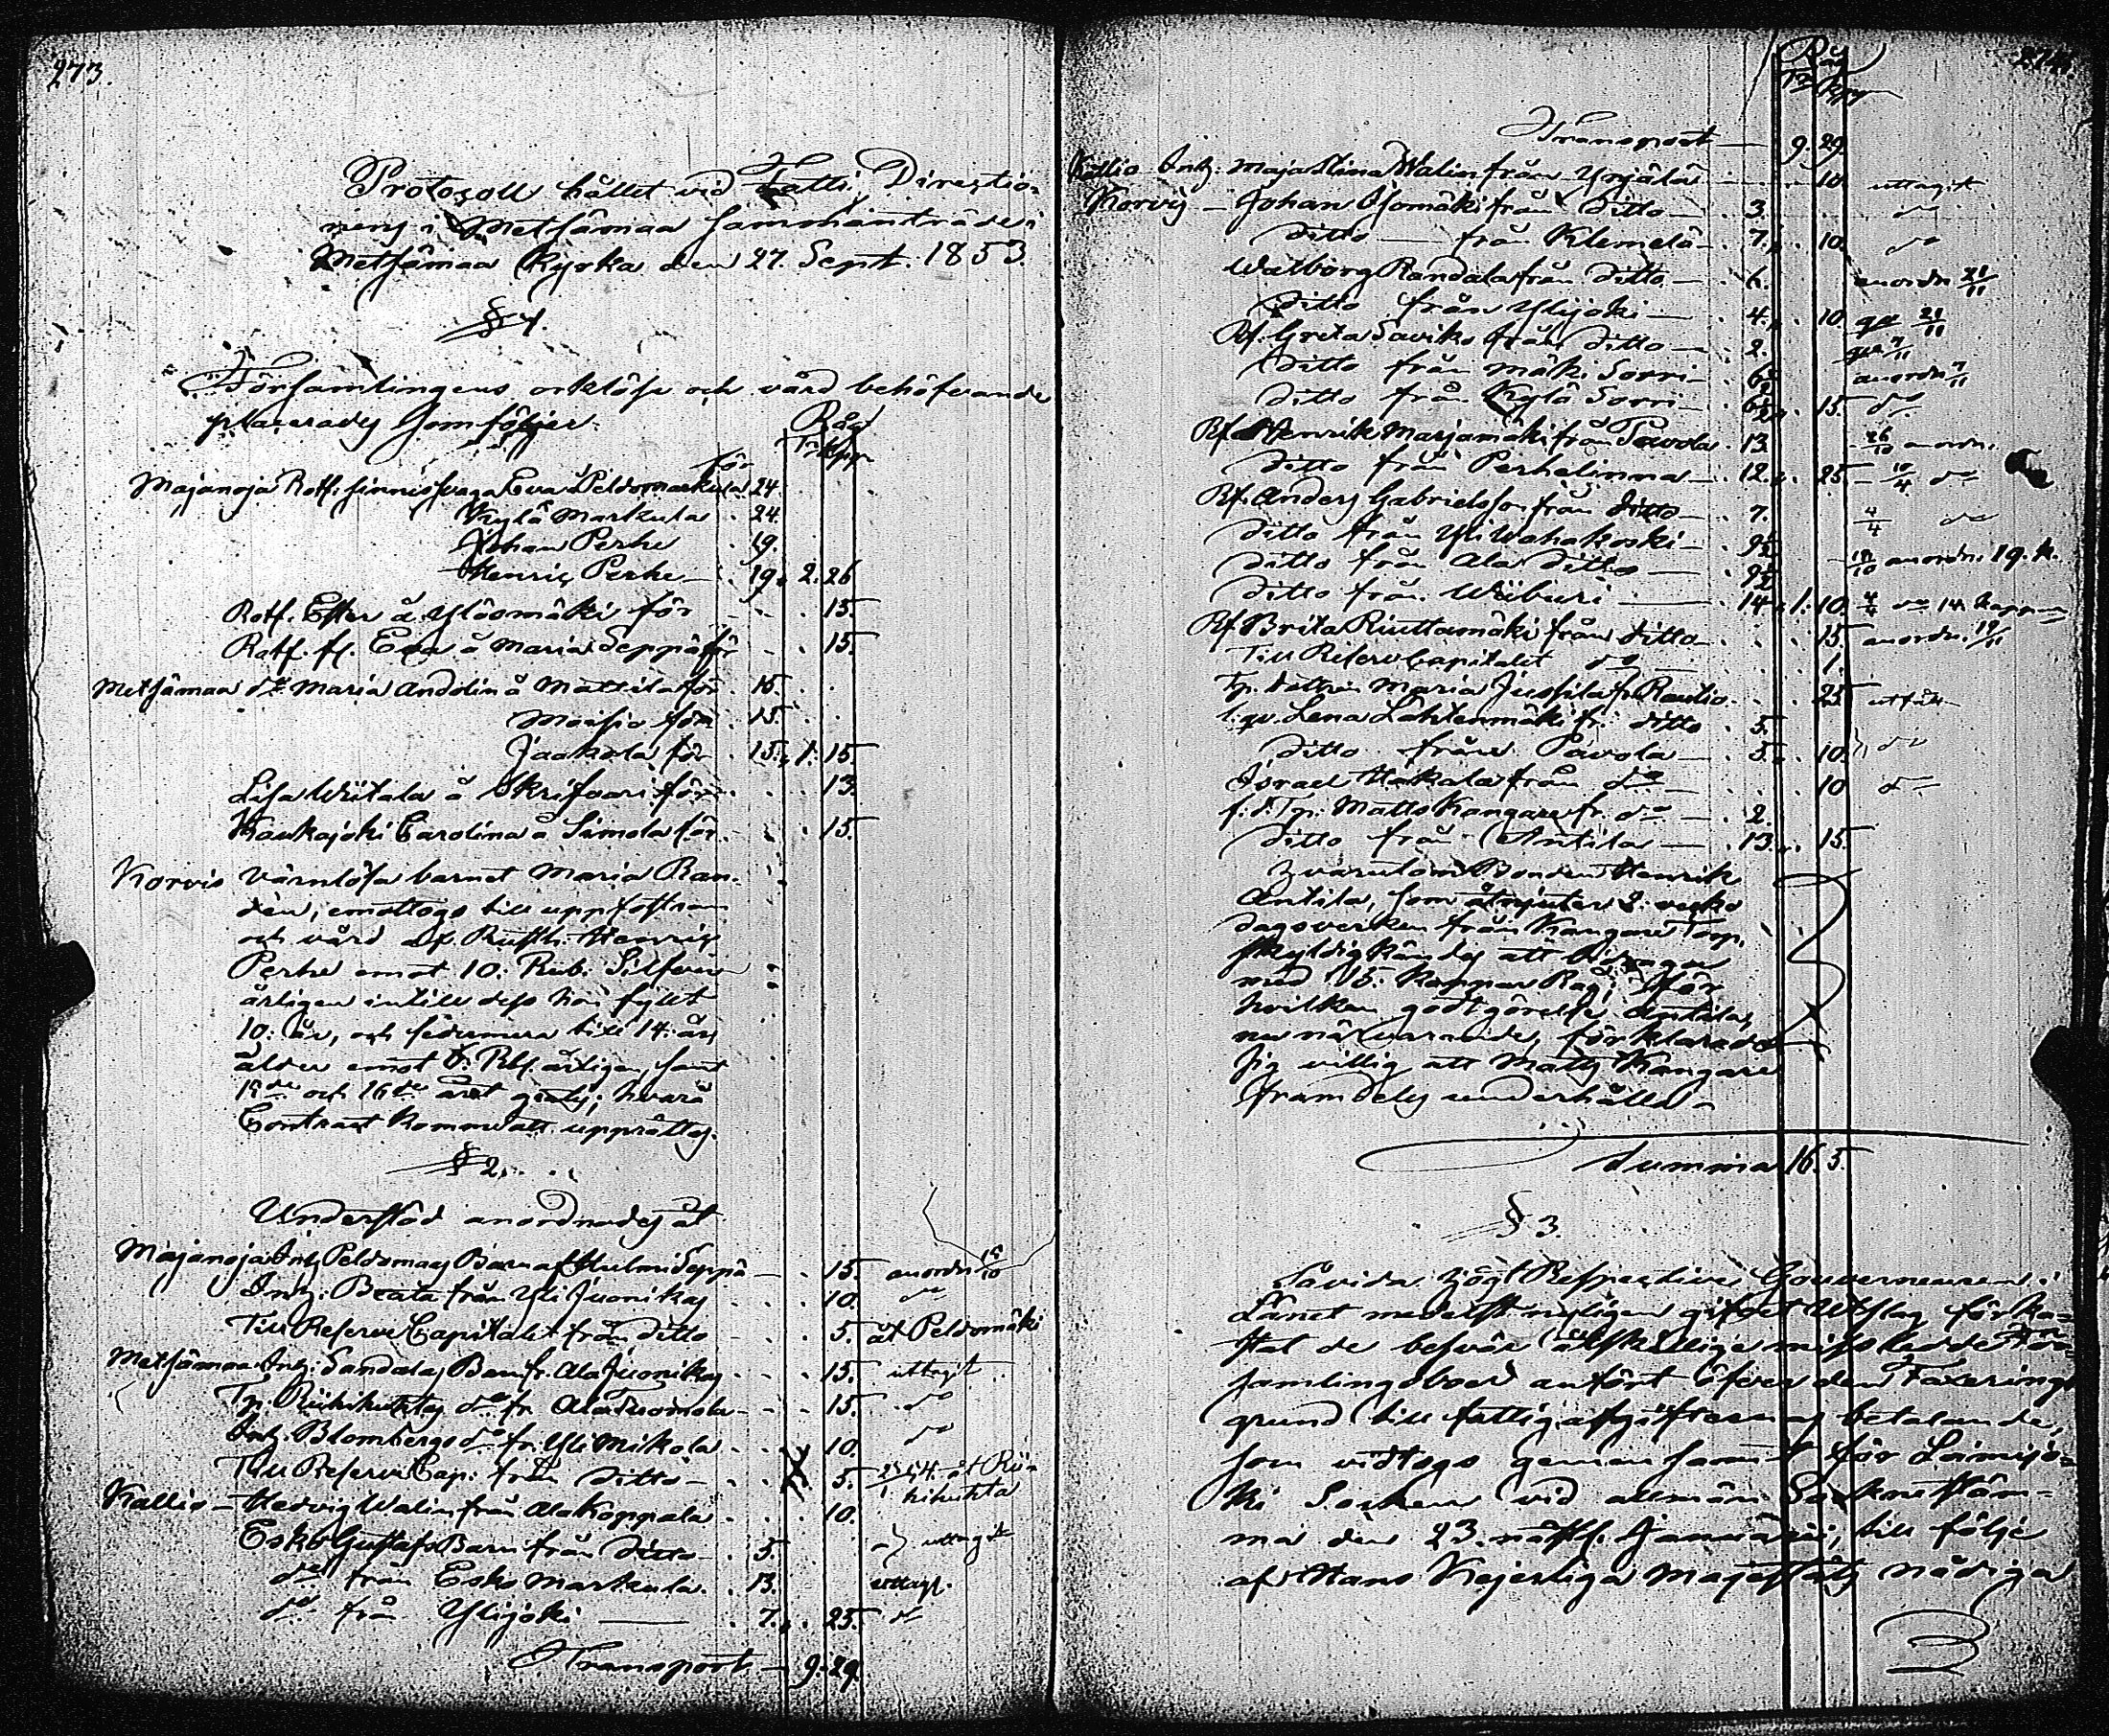 273.
Protocoll hållet vid Fatti Directio-
nens i Metsämaa sammanträde i
Metsämaa Kyrka den 27. Sept. 1853.
§ 1.
Församlingens orklösa och vård behöfvande
placerades som följer.
Råg
Tr Kpr
för
Majanoja Rotf. sinnessvaga Eva å Peldomarkula 24.
Kylä Markula 24.
Johan Perhe 19.
Henric Perhe 19. 2. 26
Rotf. Ester å Ylöömäki för 15.
Rotf. fl. Eva å Maria Seppä för 15.
Metsämaa do Maria Andolin å Mattila för 15.
Moisio för 15.
Jaakola för 15. 1. 15
Lisa Wiitala å Skrifvari för 13.
Koukajoki Carolina å Simola för 15.
Korvis värnlösa barnet Maria Ran-
dén, emottogs till uppfostran
och vård af Rusth. Henric
Perhe emot 10. Rub. Silfver
årligen intill dess hon fyllt
10. år, och sedermera till 14. års
ålder emot 6. Rbl. årligen, samt
15de och 16de året gratis; hvarå
Contract kommer att upprättas.
§ 2.
Understöd anordnades åt
Majanoja Inh. Peldomäs Barn af Hulmi Seppä 15. anordn. 15/10
Inh. Beata från Yli Juonikas 10. do
Till Reserv Capitalet från ditto 5. åt Peldomäki
Metsämaa Inh. Sandelas Barn fr. Ala Juonikas 15. uttagit
Tp. Riihihuhtas do fr. Ala Tuomola 15. do
Inh. Blombergs do fr. Yli Mikola 10. do
Till Reserv Cap. från ditto 5. åt Rii-
hihuhta
Kallio Hedvig Walin från Ala Koppala 10.
Esko Gustafs Barn från ditto 5. uttagit
do från Esko Markula 13. uttagt.
do från Ylijoki 7. 25. do
Transport 9. 29.
274.
Råg
Tr Kpr
Transport 9. 29.
Kallio Inh. Maja Stina Walin från Yrjälä 10 uttagit
Korvis Johan Ojomäki från ditto 3. do
ditto från Klemelä 7. 10. do
Walborg Randala från ditto 6. anordn 21/11
ditto från Ylijoki 4. 10. 21/11
Rf. Greta Saviko från ditto 2. 7/11
ditto från Mäki Sorri 6½ anordn 7/11
ditto från Kylä Sorri 6½ 15. do
Rf. Henrik Marjamäki från Pavola 13. 26/10 anordn.
ditto från Perhelinna 12. 25 10/4 do
Rf. Anders Gabrielsson från ditto 7. 4/4 do
ditto från Yli Wahakoski 9½
ditto från Ala ditto 9½ 19/10 anordn. 19. k.
ditto från Wiiburi 14. 1. 10. 4/4 do 14 kappar
Rf. Brita Riuttamäki från ditto 15. anordn. 19/11
Till Reserv Capitalet do 1.
Tp. dottren Maria Jussila fr. Rautio 25
Lena Lähtenmäki fr. ditto 5.
ditto från Pavola 5. 10. do
Israel Hakala från do 10 do
f. d. Tp. Matts Kangare fr. do 2.
ditto från Antila 13. 15.
hvarutom Bonden Henrik
Antila, som åtnjuter 2. vecko
dagsverken från Kangare Torp,
skyldigkändes att bidraga
med 15. Kappar Råg; för
hvilken godtgörelse Antila,
nu närvarande, förklarade
sig villig att Matts Kangare
framdeles underhålla.
Summa 16. 5.
§ 3.
Såvida högt Respective Gouverneuren i
Länet medelst nyligen gifvet Utslag förka-
stat de besvär åtskillige missledde För-
samlingsboer anfört öfver den Taxerings
grund till fattigafgifternas betalande,
som vidtogs gemensamt för Loimijo-
ki Socken vid allmän Sockne stäm-
ma den 23. nästl. Januarii, till följe
af Hans Kejserliga Majestäts nådiga